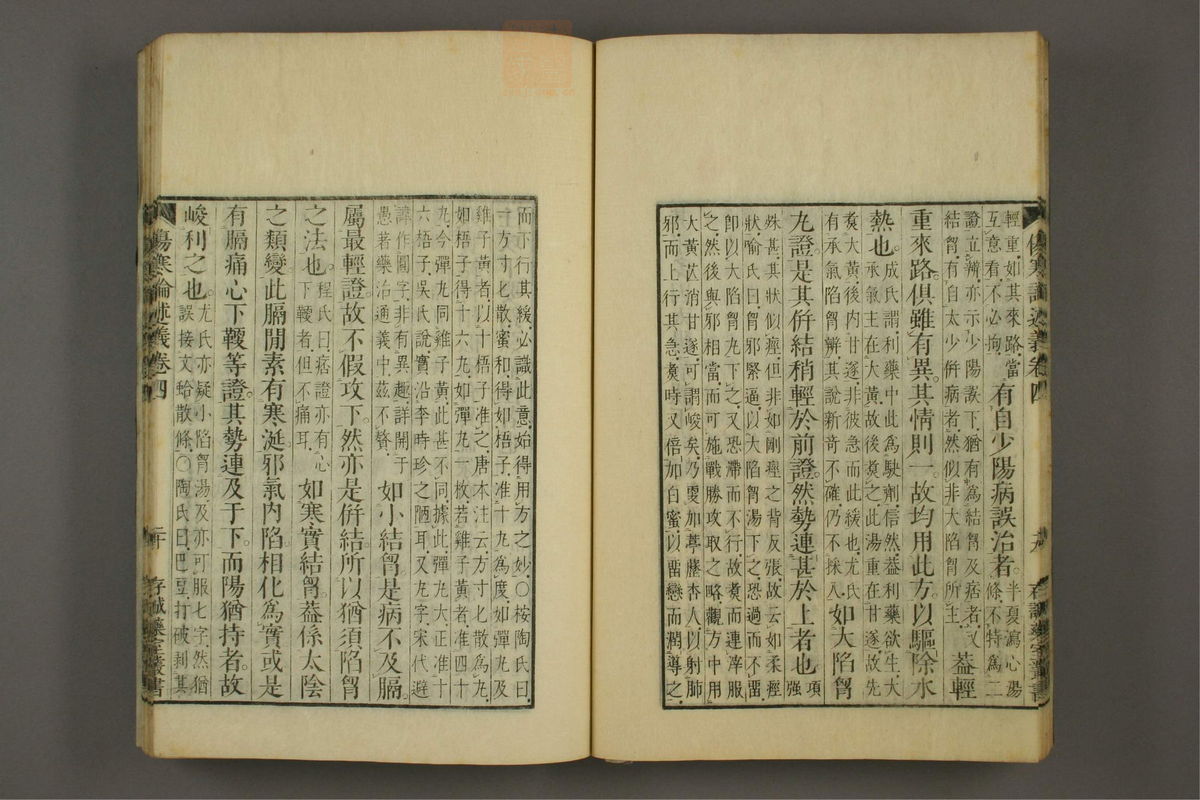 傷寒論述義卷四
十九
存誠藥室叢書
輕重、如其來路、當
互意看、不必拘、
有自少陽病誤治者。
半夏瀉心湯
條、不特爲二
證立辨、亦示少陽誤下、猶有爲結胷及痞者、又
結胷、有自太少併病者、然似非大陷胷所主、
葢輕
重來路俱雖有異。其情則一。故均用此方。以驅除水
熱也。
成氏謂、利藥中此爲駃劑、信然、葢利藥欲生、大
承氣主在大黃故後煑之、此湯重在甘遂、故先
煑大黃、後內甘遂、非彼急而此緩也、尤氏
有承氣陷胷辨、其說新奇不確、仍不採入
如大陷胷
丸證。是其併結稍輕於前證。然勢連甚於上者也
項
强
殊甚、其狀似痙、但非如剛痙之背反張、故云如柔痙
狀、喻氏曰、胷邪緊逼、以大陷胷湯下之、恐過而不留、
卽以大陷胷丸下之、又恐滯而不行、故煑而連滓服
之、然後與邪相當、而可施戰勝攻取之略、觀方中用
大黃芒消甘遂、可謂峻矣、乃更加葶藶杏人、以射肺
邪、而上行其急、煑時又倍加白蜜、以留戀而潤導之、
而下行其緩、必識此意、始得用方之妙、○桉陶氏曰、
一方寸匕散、蜜和、得如梧子、准十丸爲度、如彈丸及
雞子黃者、以十梧子准之、唐本注云、方寸匕散爲丸、
如梧子得十六丸、如彈丸一枚、若雞子黃者、准四十
丸、今彈丸同雞子黃、此甚不同、據此、彈丸大、正准十
六梧子、吳氏說、實沿李時珍之陋耳、又丸字、宋代避
諱作圓字、非有異趣、詳開于
愚著藥治通義中、茲不贅、
如小結胷。是病不及膈
屬最輕證。故不假攻下。然亦是併結。所以猶須陷胷
之法也。
程氏曰、痞證亦有心
下鞕者、但不痛耳、
如寒實結胷。葢係太陰
之類變。此膈閒素有寒涎。邪氣內陷。相化爲實。或是
有膈痛心下鞕等證。其勢連及于下。而陽猶持者。故
峻利之也
尤氏亦疑小陷胷湯及亦可服七字、然猶
誤接文蛤散條、○陶氏曰、巴豆、打破、剝其
傷寒論述義卷四
二十
存誠藥室叢書